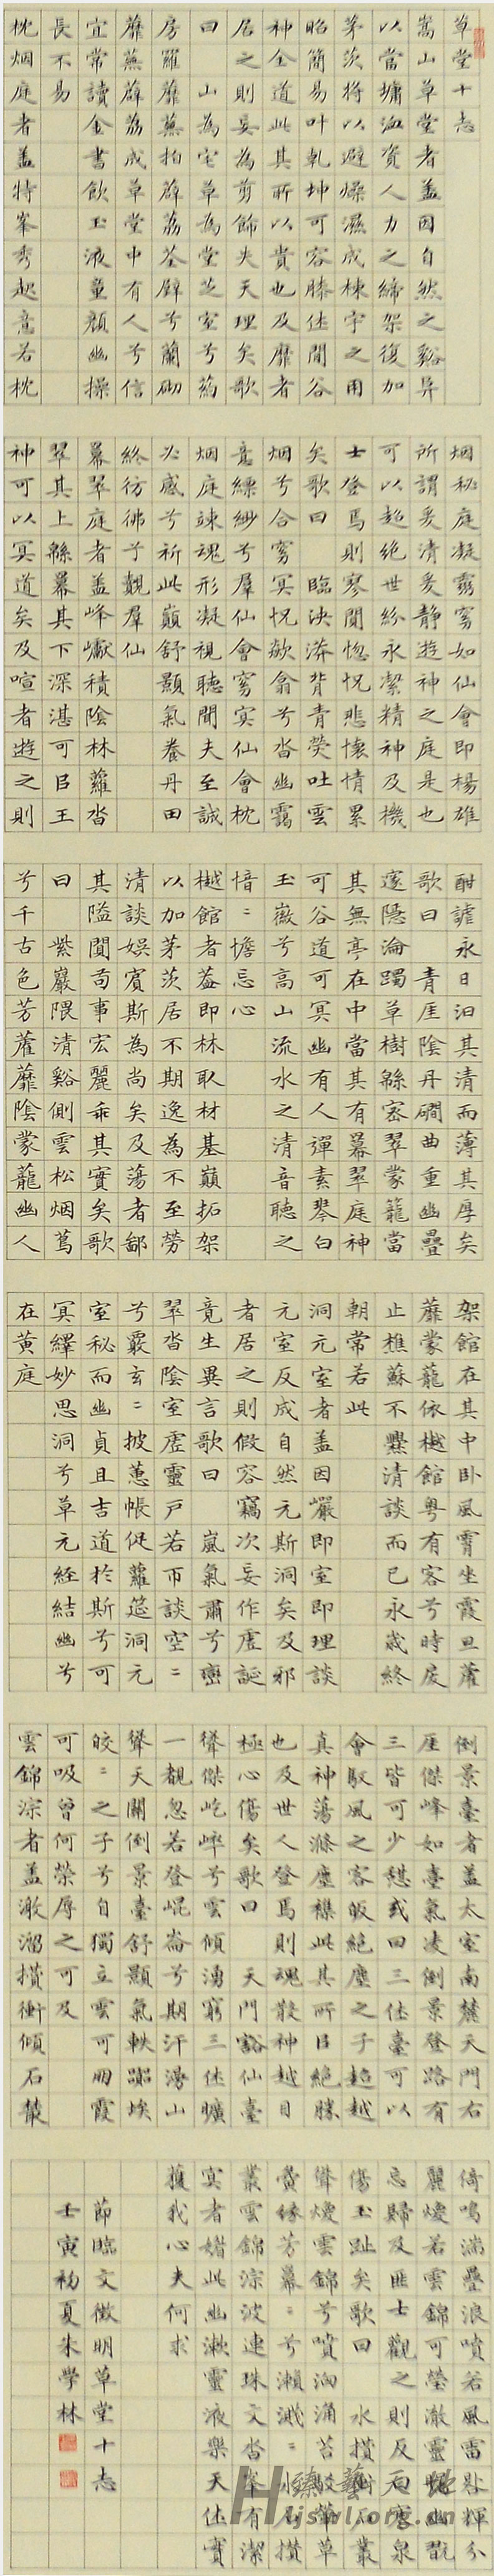 草堂十志
嵩山草堂者盖因自然之谿阜
以當墉洫資人力之締架復加
茅茨将以避燥濕成棟宇之用
昭簡易叶乾坤可容膝休閒谷
神全道此其所以貴也及靡者
居之則妄為剪飾失天理矣歌
曰 山為宅草為堂芝室兮葯
房羅蘼蕪拍薜荔荃壁兮蘭砌
蘼蕪薜荔成草堂中有人兮信
宜常讀金書飲玉液童顏幽操
長不易
枕烟庭者盖特峯秀起意若枕
烟秘庭凝霛窅如仙會即楊雄
所謂爰清爰静遊神之庭是也
可以超絕世紛永潔精神及機
士登焉則寥閴惚怳悲懷情累
矣歌曰 臨泱漭背青熒吐雲
烟兮合窅冥怳欻翕兮沓幽靄
意縹緲兮羣仙會窅冥仙會枕
烟庭竦魂形凝視聽聞夫至誠
必感兮祈此巔舒顥氣養丹田
終彷彿兮覯羣仙
羃翠庭者盖峰巘積陰林蘿沓
翠其上緜羃其下深湛可㠯王
神可以冥道矣及喧者遊之則
酣謔永日汩其清而薄其厚矣
歌曰 青厓陰丹磵曲重幽疊
邃隱淪躅草樹緜羃翠蒙籠當
其無亭在中當其有羃翠庭神
可谷道可冥幽有人彈素琴白
玉徽兮高山流水之清音聽之
愔愔憺忘心
樾館者盖即林取材基巔拓架
以加茅茨居不期逸為不至勞
清談娛賓斯為尚矣及蕩者鄙
其隘闃苟事宏麗乖其實矣歌
曰 紫巖隈清谿側雲松烟蔦
兮千古色芳蘿蘼陰蒙籠幽人
架館在其中卧風霄坐霞旦蘿
蘼蒙籠依樾館粤有客兮時戾
止樵蘇不爨清談而已永歲終
朝常若此
洞元室者盖因巖即室即理談
元室反成自然元斯洞矣及邪
者居之則假容竊次妄作虛誣
竟生異言歌曰 嵐氣肅兮巒
翠沓陰室虛靈戶若帀談空〻
兮覈玄〻披蕙帳促蘿筵洞元
室秘而幽貞且吉道於斯兮可
冥繹妙思洞兮草元經結幽兮
在黄庭
倒景臺者盖太室南麓天門右
厓傑峰如臺氣凌倒景登路有
三皆可少憇或曰三休臺可以
會馭風之客皈絕塵之子超越
真神蕩滌塵襟此其所㠯絕勝
也及世人登焉則魂散神越目
極心傷矣歌曰 天門豁仙臺
聳傑屹崒兮雲傾湧窮三休曠
一覩忽若登崐崙兮期汗漫山
聳天關倒景臺舒顥氣軼躡埃
皎〻之子兮自獨立雲可朋霞
可吸曾何榮辱之可及
雲錦淙者盖激溜攢衝傾石叢
倚鳴湍疊浪噴若風雷輝分
麗煥若雲錦可瑩澈靈矚幽翫
忘歸及匪士觀之則反曰寒泉
傷玉趾矣歌曰 水攢衝石叢
聳煥雲錦兮噴洶涌苔駮犖草
夤緣芳羃〻兮瀨濺〻水石攢
叢雲錦淙波連珠文沓峯有潔
冥者媚此幽漱靈液樂天休實
獲我心夫何求
節臨文徵明草堂十志
壬寅初夏朱學林